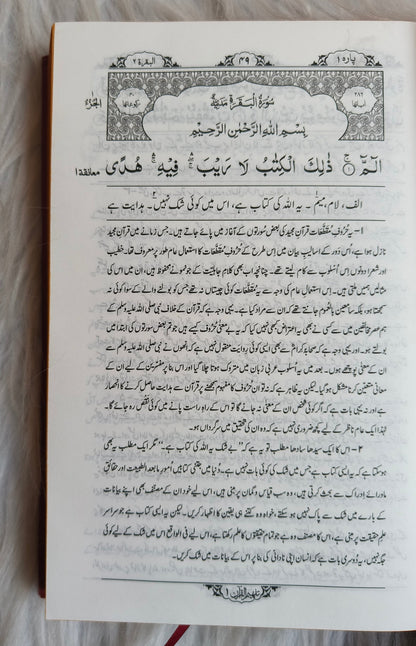 پارہ ۱ ۴۹ البقرۃ ۲
الجزء
سورۃ البقرۃ مدنیۃ
بسم اللہ الرحمٰن الرحیم
الٓمّٓ ۚ﴿۱﴾ ذٰلِكَ الْكِتٰبُ لَا رَيْبَ ۛۖ فِيْهِ ۛۚ هُدًى معانقۃ ۱
الف، لام، میم۱۔ یہ اللہ کی کتاب ہے، اس میں کوئی شک نہیں۲۔ ہدایت ہے
۱۔ یہ حُروفِ مُقَطَّعات قرآن مجید کی بعض سورتوں کے آغاز میں پائے جاتے ہیں۔ جس زمانے میں قرآن مجید
نازل ہوا ہے، اُس دَور کے اسالیبِ بیان میں اِس طرح کے حُروفِ مقطّعات کا استعمال عام طور پر معروف تھا۔ خطیب
اور شعرا دونوں اس اُسلوب سے کام لیتے تھے۔ چنانچہ اب بھی کلام جاہلیت کے جو نمونے محفوظ ہیں، ان میں اس کی
مثالیں ہمیں ملتی ہیں۔ اِس استعمالِ عام کی وجہ سے یہ مقطّعات کوئی چیستاں نہ تھے جس کو بولنے والے کے سوا کوئی نہ
سمجھتا ہو، بلکہ سامعین بالعموم جانتے تھے کہ ان سے مراد کیا ہے۔ یہی وجہ ہے کہ قرآن کے خلاف نبی صلی اللہ علیہ وسلم کے
ہم عصر مخالفین میں سے کسی نے بھی یہ اعتراض کبھی نہیں کیا کہ یہ بے معنی حُروف کیسے ہیں جو تم بعض سورتوں کی ابتدا میں
بولتے ہو۔ اور یہی وجہ ہے کہ صحابۂ کرامؓ سے بھی ایسی کوئی روایت منقول نہیں ہے کہ اُنھوں نے نبی صلی اللہ علیہ وسلم سے
ان کے معنی پوچھے ہوں۔ بعد میں یہ اُسلوب عربی زبان میں متروک ہوتا چلا گیا اور اس بنا پر مفسّرین کے لیے ان کے
معانی متعیّن کرنا مشکل ہو گیا۔ لیکن یہ ظاہر ہے کہ نہ تو ان حُروف کا مفہوم سمجھنے پر قرآن سے ہدایت حاصل کرنے کا انحصار
ہے اور نہ یہی بات ہے کہ اگر کوئی شخص ان کے معنی نہ جانے گا تو اس کے راہِ راست پانے میں کوئی نقص رہ جائے گا۔
لہٰذا ایک عام ناظر کے لیے کچھ ضروری نہیں ہے کہ وہ ان کی تحقیق میں سرگرداں ہو۔
۲۔ اس کا ایک سیدھا سادھا مطلب تو یہ ہے کہ ”بے شک یہ اللہ کی کتاب ہے“۔ مگر ایک مطلب یہ بھی
ہو سکتا ہے کہ یہ ایسی کتاب ہے جس میں شک کی کوئی بات نہیں ہے۔ دُنیا میں جتنی کتابیں اُمورِ مابعد الطبیعت اور حقائقِ
ماورائے ادراک سے بحث کرتی ہیں، وہ سب قیاس و گمان پر مبنی ہیں، اس لیے خود ان کے مصنّف بھی اپنے بیانات
کے بارے میں شک سے پاک نہیں ہو سکتے، خواہ وہ کتنے ہی یقین کا اظہار کریں۔ لیکن یہ ایسی کتاب ہے جو سراسر
علمِ حقیقت پر مبنی ہے، اس کا مصنّف وہ ہے جو تمام حقیقتوں کا علم رکھتا ہے، اس لیے فی الواقع اس میں شک کے لیے کوئی
جگہ نہیں، یہ دُوسری بات ہے کہ انسان اپنی نادانی کی بنا پر اس کے بیانات میں شک کریں۔
تفہیم القرآن ۱